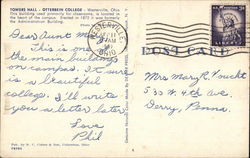 TOWERS HALL - OTTERBEIN COLLEGE - Westerville, Ohio
This building used primarily for classrooms, is located in
the heart of the campus. Erected in 1872 it was formerly
the Administration Building.
Dear Aunt M
This is one of
the main buildings
on campus. It sure
is a beautiful
college. I'll write
you a letter later.
Love
Phil
WESTERVILLE
OHIO
3¢
LIBERTY
POST CARD
Mrs Mary R. Foucht
535 W. 4th Ave
Derry, Penna.